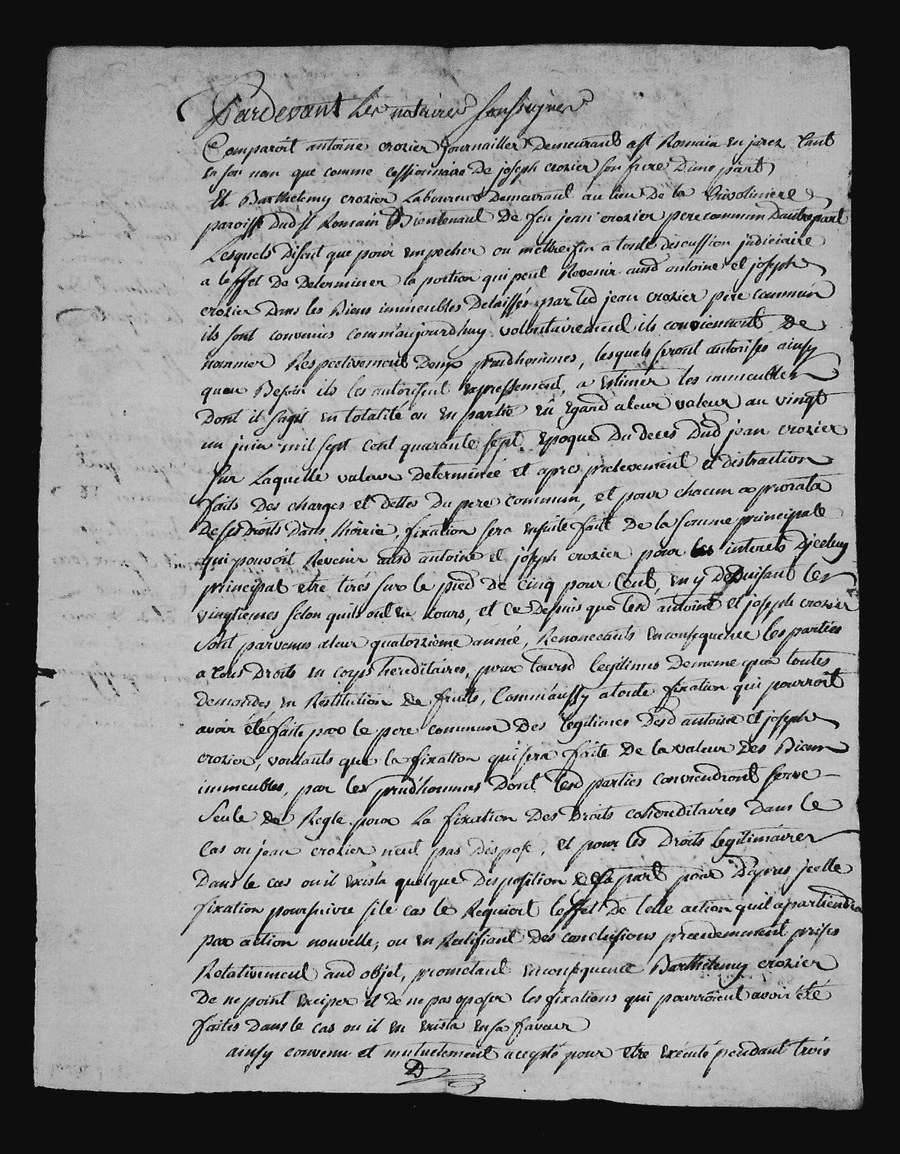 Pardevant Les notaires soussignes
Comparoit antoine crozier journaillier Demeurant a st Romain en jarez tant
en son nom que comme cessionnaire De joseph crozier son frere D'une part
Et Barthelemy crozier Laboureur Demeurant au lieu De la
paroisse Dud st Romain Bientenant De feu jean crozier pere commun Dautre part
Lesquels Disent que pour empecher ou mettre fin a toute discussion judiciaire
a leffet De Determiner la portion qui peut Revenir aud antoine et joseph
crozier Dans les Biens immeubles Delaissés par led jean crozier pere commun
ils sont convenus comm'aujourdhuy volontairement ils conviennent De
nommer Respectivement Deux prudhommes, lesquels seront autorises ainsy
quau Besoin ils les autorisent expressement, a estimer les immeubles
Dont il sagit en totalité ou en partie Eû Egard a leur valeur au vingt
un juin mil sept cent quarante sept Epoque Du deces Dud jean crozier
sur Laquelle valeur Determinée et apres prelevement et distraction
faits Des charges et dettes Du pere commun, et pour chacun a prorata
De ses Droits Dans l'hoirie, fixation sera ensuite faite De la somme principale
qui pouvoit Revenir aud antoine et joseph crozier pour les interets Djceluy
principal etre tirés sur le pied De cinq pour Cent, en y deduisant les
vingtiemes selon quils ont eu cours, et ce Depuis que led antoine et joseph crozier
sont parvenus a leur quatorzieme année, Renonceants en consequence les parties
a tous Droits en corps hereditaires, pour leursd legitimes De meme que toutes
demandes en Restitution de fruits, Comm'aussy a toute fixation qui pourroit
avoir été faite par le pere commun Des legitimes Desd antoine et joseph
crozier, voulants que la fixation qui sera faite De la valeur Des Biens
immeubles, par les prud'hommes Dont lesd parties conviendront serve
seule De Regle pour La fixation Des Droits cohereditaires Dans le
Cas ou jean crozier n'eut pas disposé, et pour les Droits legitimaires
Dans le cas ou il exista quelque Disposition De sa part pour D'après jcelle
fixation poursuivre si le cas le Requiert l'effet De telle action qu'il apartiendra
par action nouvelle, ou en Ratifiant Des conclusions precedemment prises
Relativement aud objet, prometant en consequence Barthelemy crozier
De ne point exciper et de ne pas opposer les fixations qui pourroient avoir été
faites Dans le cas ou il en exista en sa faveur
ainsy convenu et mutuelement accepté pour etre executé pendant trois